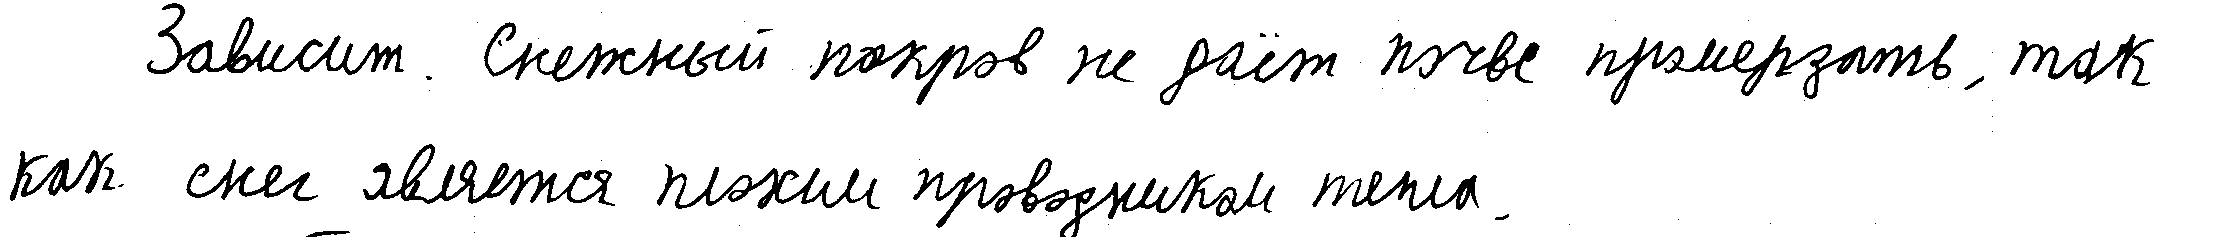 Зависит. Снежный покров не даёт почве промерзать, так
как снег является плохим проводником тепла.